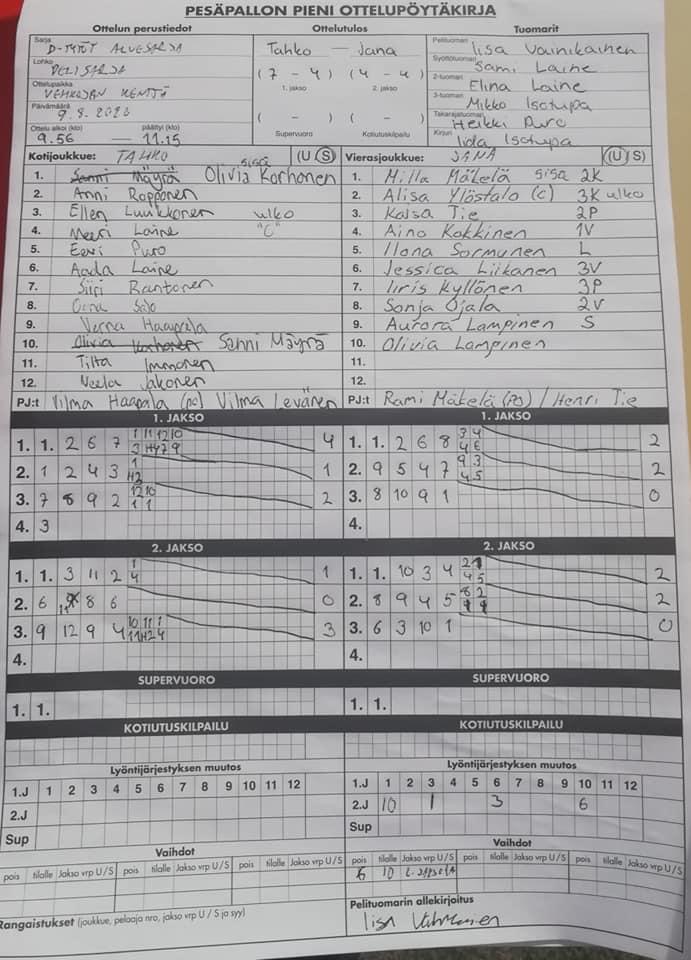 PESÄPALLON PIENI OTTELUPÖYTÄKIRJA
Ottelun perustiedot Ottelutulos Tuomarit
Sarja D-TYTÖT ALUESARJA
Tahko — Jana
Pelituomari Iisa Vainikainen
Lohko PELISARJA
(7 - 4) (4 - 4)
1. jakso 2. jakso
Syöttötuomari Sami Laine
Ottelupaikka KENTTÄ
2-tuomari Elina Laine
3-tuomari Mikko Isotupa
Päivämäärä 9.8.
( - ) ( - )
Takarajatuomari Heikki Puro
Ottelu alkoi (klo) päättyi (klo)
9.56 — 11.15
Supervuoro Kotiutuskilpailu
Kirjuri Isotupa
Kotijoukkue: TAHKO (U S)
1. Sanni Mäyrä Olivia Korhonen sisä
2. Anni Ropponen
3. Ellen Luukkonen ulko
4. Meeri Laine "C"
5. Eevi Puro
6. Aada Laine
7. Siiri Rantonen
8. Oona Salo
9. Verna Haapala
10. Olivia Korhonen Sanni Mäyrä
11. Tilta Immonen
12. Neela Jakonen
PJ:t Vilma Haapala (PJ) Vilma Levänen
Vierasjoukkue: JANA (U S)
1. Milla Mäkelä sisä 2K
2. Alisa Ylöstalo (C) 3K ulko
3. Kaisa Tie 2P
4. Aino Kokkinen 1V
5. Ilona Sormunen L
6. Jessica Liikanen 3V
7. Iiris Kyllönen 3P
8. Sonja Ojala 2V
9. Aurora Lampinen S
10. Olivia Lampinen
11.
12.
PJ:t Rami Mäkelä (PJ) / Henri Tie
1. JAKSO
1. 1. 2 6 7 4
2. 1 2 4 3 1
3. 7 8 9 2 2
4. 3
1. JAKSO
1. 1. 2 6 8 3 4 4 6 2
2. 9 5 4 7 9 3 4 5 2
3. 8 10 9 1 0
4.
2. JAKSO
1. 1. 3 11 2 1 4 1
2. 6 11 8 6 0
3. 9 12 9 4 3
4.
2. JAKSO
1. 1. 10 3 4 2
2. 8 9 4 5 2
3. 6 3 10 1 0
4.
SUPERVUORO
1. 1.
SUPERVUORO
1. 1.
KOTIUTUSKILPAILU
KOTIUTUSKILPAILU
Lyöntijärjestyksen muutos
1.J 1 2 3 4 5 6 7 8 9 10 11 12
2.J
Sup
Lyöntijärjestyksen muutos
1.J 1 2 3 4 5 6 7 8 9 10 11 12
2.J 10 1 3 6
Sup
Vaihdot
pois tilalle Jakso vrp U/S pois tilalle Jakso vrp U/S pois tilalle Jakso vrp U/S
Vaihdot
pois tilalle Jakso vrp U/S pois tilalle Jakso vrp U/S pois tilalle Jakso vrp U/S
6 10
Rangaistukset (joukkue, pelaaja nro, jakso vrp U / S ja syy)
Pelituomarin allekirjoitus
Iisa Vainikainen